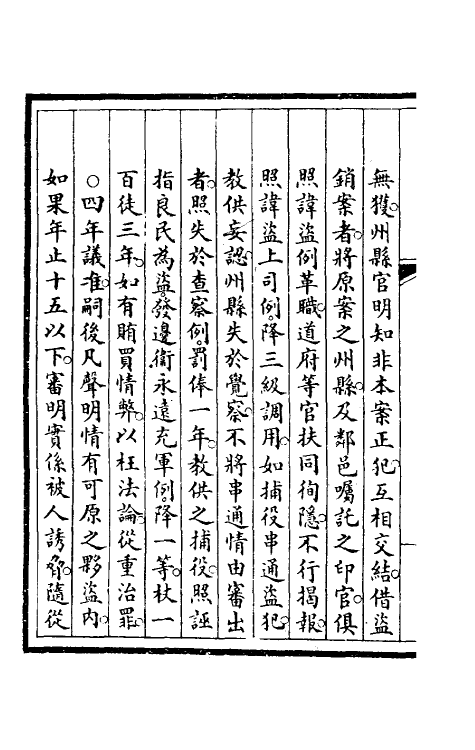 無獲。州縣官明知非本案正犯。互相交結。借盜
銷案者。將原案之州縣。及鄰邑囑託之印官。俱
照諱盜例革職。道府等官扶同徇隱。不行揭報。
照諱盜上司例。降三級調用。如捕役串通盜犯。
教供妄認。州縣失於覺察。不將串通情由審出
者。照失於查察例。罰俸一年。教供之捕役。照誣
指良民為盜。發邊衛永遠充軍例。降一等。杖一
百徒三年。如有賄買情弊。以枉法論。從重治罪。
○四年議准。嗣後凡聲明情有可原之夥盜內。
如果年止十五以下。審明實係被人誘脅。隨從